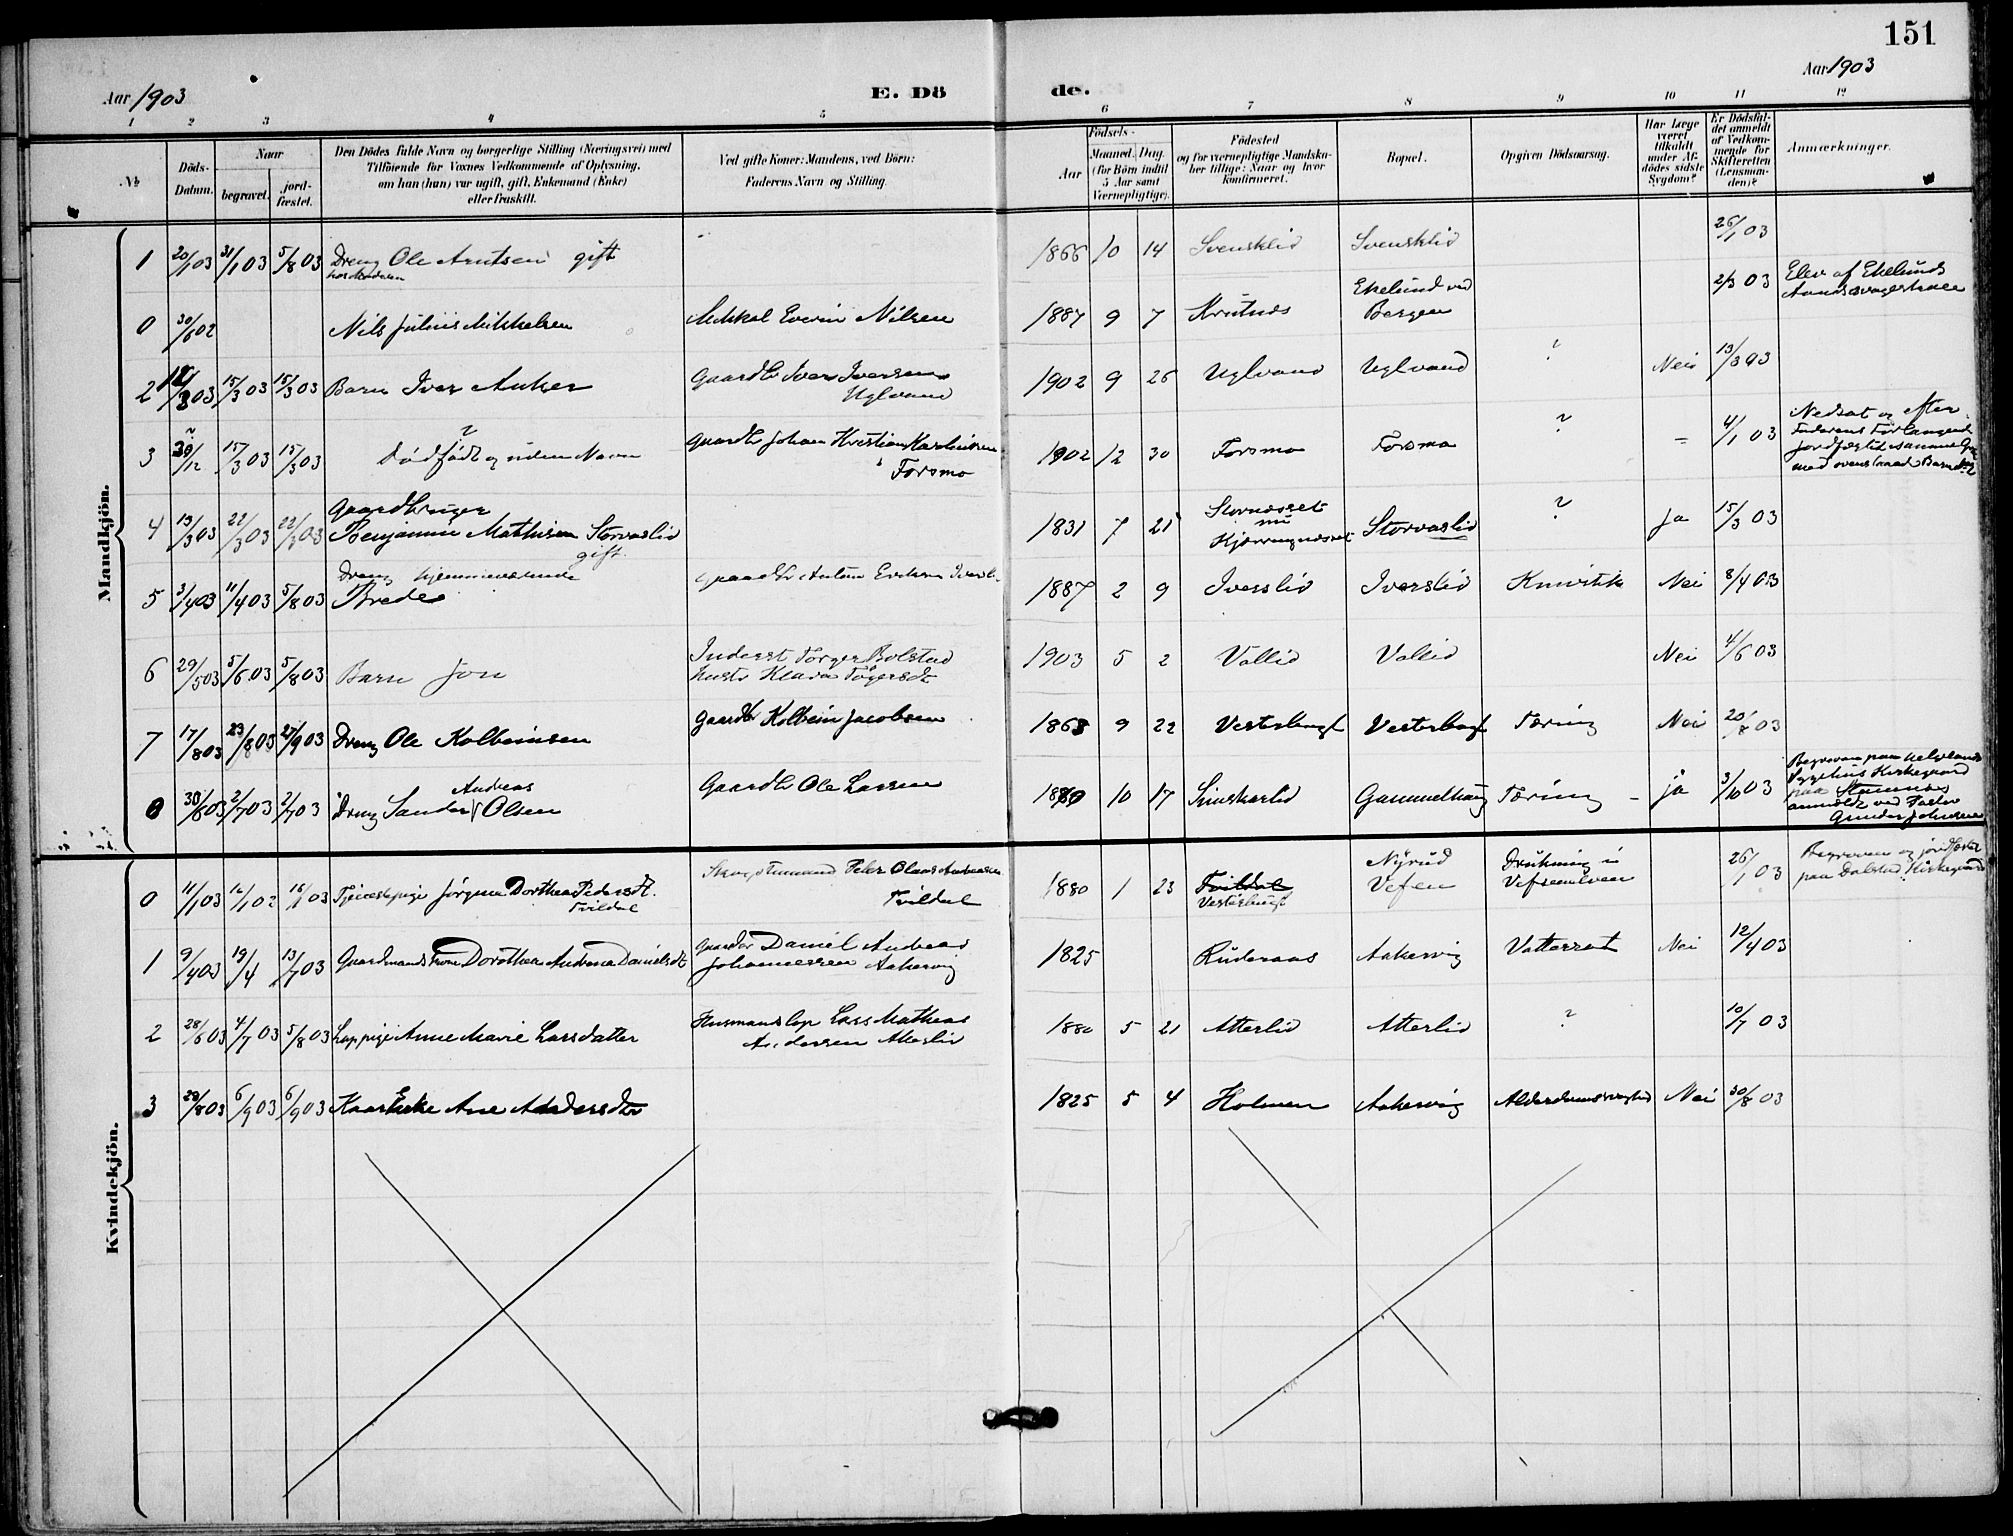 151
Aar 1903
E. Dö
de.
Aar 1903
1 2 3 4 5 6 7 8 9 10 11 12
No
Döds-Datum.
Naar
begravet.
jord-fæstet.
Den Dödes fulde Navn og borgerlige Stilling (Næringsvei) med
Tilföiende for Voxnes Vedkommende af Oplysning,
om han (hun) var ugift, gift, Enkemand (Enke)
eller fraskilt.
Ved gifte Koner: Mandens, ved Börn:
Faderens Navn og Stilling.
Födsels-
Aar
Maaned. Dag.
(for Börn indtil
5 Aar samt
Værnepligtige).
Födested
og for værnepligtige Mandska-
ber tillige: Naar og hvor
konfirmeret.
Bopæl.
Opgiven Dödsaarsag.
Har Læge
været
tilkaldt
under Af-
dödes sidste
Sygdom?
Er Dödsfal-
det anmeldt
af Vedkom-
mende for
Skifteretten
(Lensman-
den)?
Anmærkninger.
Mandkjön.
1 20/1 03 31/1 03 5/8 03 Dreng Ole Arntsen gift 1866 10 14 Svensklid Svensklid 26/1 03
0 30/6 02 Nils Julius Mikkelsen Mikkal Everin Nilsen 1887 9 7 Krutnes Ekelund ved Bergen 2/3 03 Elev af Ekelunds
2 03 15/3 03 15/3 03 Barn Iver Anker Gaardbr Iver Iversen Uglvand 1902 9 26 Uglvand Uglvand ? Nei 13/3 03
3 30/12 15/3 03 15/3 03 Dödfödt og uden Navn Gaardbr Johan Kristian Karolinsen Forsmo 1902 12 30 Forsmo Forsmo ? - 4/1 03 Nedsat og efter Faderens Forlangend
4 13/3 03 22/3 03 22/3 03 Gaardbruger Benjamin Mathisen Storvaslid gift 1831 7 21 Stornæsset nu Kjærringnæsset Storvaslid ? Ja 15/3 03
5 3/4 03 11/4 03 5/8 03 Dreng hjemmeværende Brede Gaardbr Anton Eriksen 1887 2 9 Iverslid Iverslid Knivstik Nei 8/4 03
6 29/5 03 5/6 03 5/8 03 Barn Jon Inderst Torger Bolstad 1903 5 2 Vallid Vallid Nei 4/6 03
7 17/8 03 23/8 03 27/9 03 Dreng Ole Kolbeinsen Gaardbr Kolbein Jacobsen 1868 9 22 Vesterbugt Vesterbugt Tæring Nei 20/8 03
0 30/6 03 2/7 03 2/7 03 Dreng Sander Andreas Olsen Gaardbr Ole Larsen 10 17 Simskarlid Gammelhaug Tæring - ja 3/10 03 Begraven paa Helgelands Sygehus Kirkegaard paa
Kvindekjön.
0 11/1 03 16/1 03 Tjenestepige Jörgine Dorthea Pedersdt. Tvildal Peter Olaus Andreassen Tvildal 1880 1 23 Tvildal Vesterbugt Nyrud Vefsen Drukning i Vefsenelven 26/1 03 Begraven og jordfæstet paa Dolstad Kirkegaard
1 9/4 03 19/4 13/7 03 Gaardmandskone Dorothea Andrena Danielsdt Gaardbr Daniel Andreas Johannessen Aakervig 1825 Ruderaas Aakervig Vattersot Nei 12/4 03
2 28/6 03 4/7 03 5/8 03 Lappige Anne Marie Larsdatter Husmand lap Lars Mathias Andersen Atterlid 1880 5 21 Atterlid Atterlid ? 10/7 03
3 29/8 03 6/9 03 6/9 03 Kaarenke Ane Andersdtr 1825 5 4 Holmen Aakervig Alderdomssvaghed Nei 30/8 03